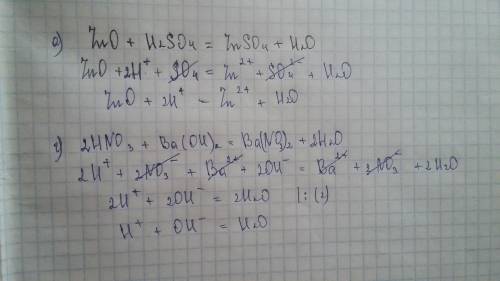 а) ZnO + H₂SO₄ = ZnSO₄ + H₂O
ZnO + 2H⁺ + SO₄ = Zn²⁺ + SO₄²⁻ + H₂O
ZnO + 2H⁺ = Zn²⁺ + H₂O
г) 2HNO₃ + Ba(OH)₂ = Ba(NO₃)₂ + 2H₂O
2H⁺ + 2NO₃⁻ + Ba²⁺ + 2OH⁻ = Ba²⁺ + 2NO₃⁻ + 2H₂O
2H⁺ + 2OH⁻ = 2H₂O |:(2)
H⁺ + OH⁻ = H₂O